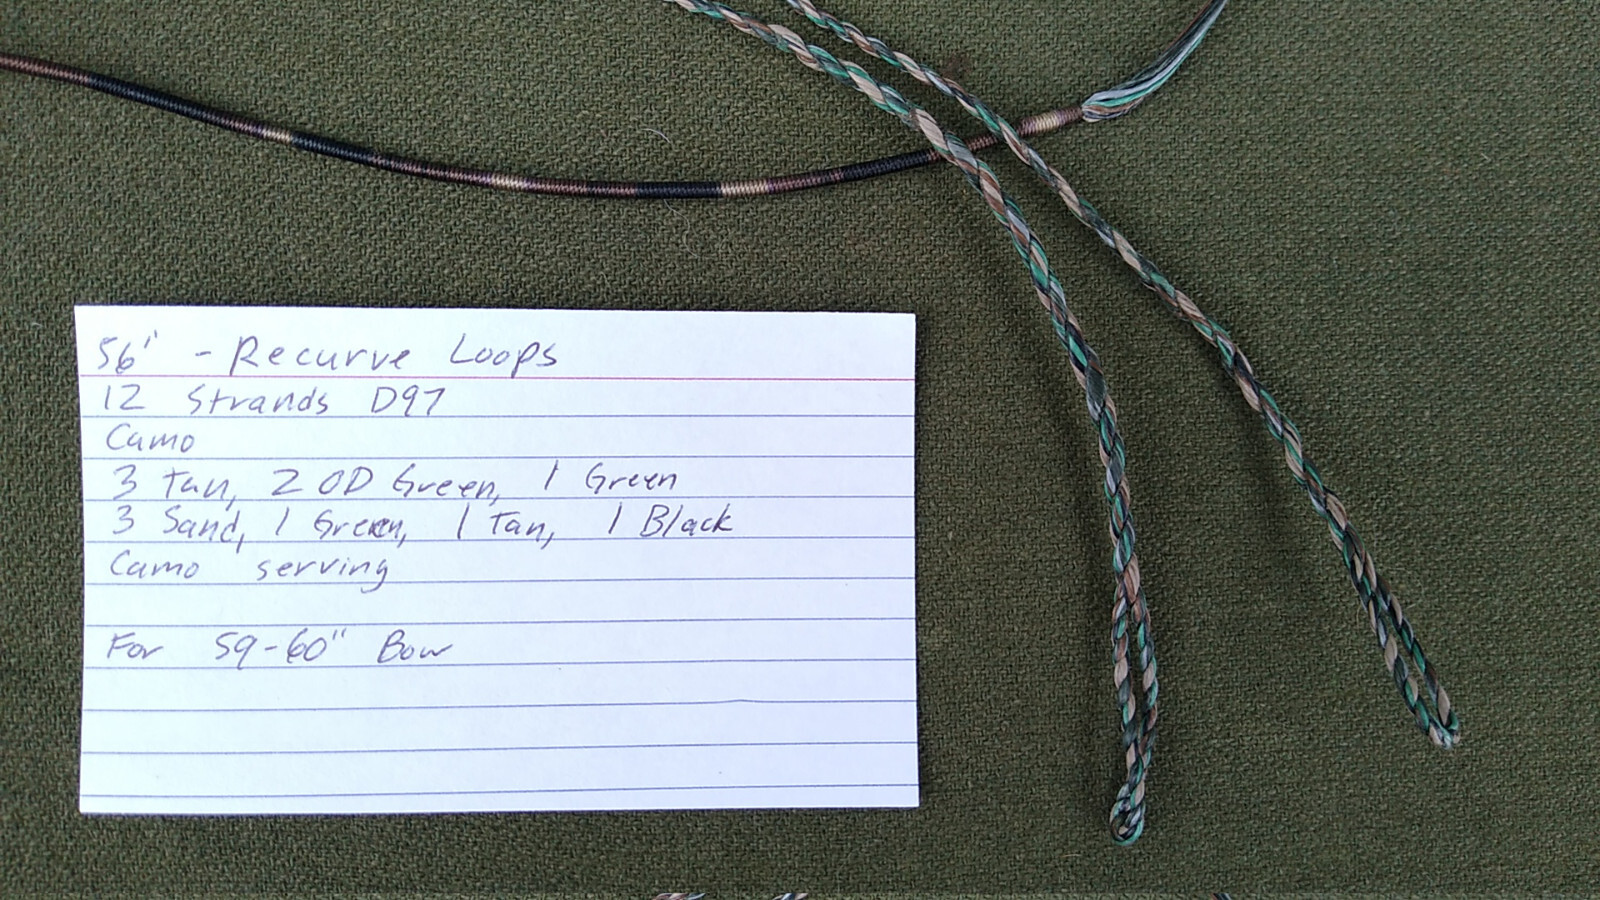 56' - Recurve Loops
12 Strands D97
Camo
3 Tan, 2 OD Green, 1 Green
3 Sand, 1 Green, 1 Tan, 1 Black
Camo serving
For 59-60" Bow